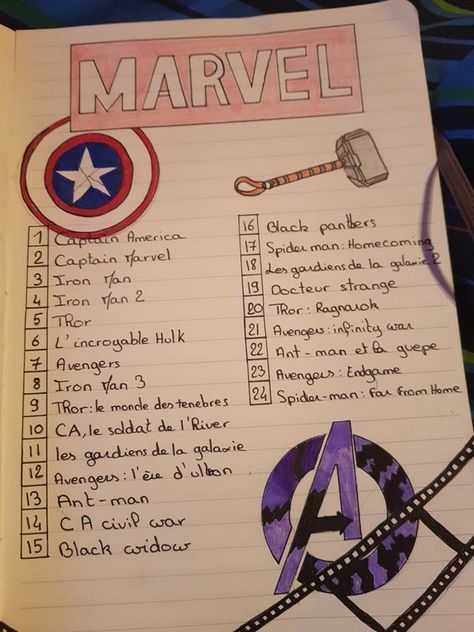 MARVEL
1 Captain America
2 Captain Marvel
3 Iron Man
4 Iron Man 2
5 Thor
6 L'incroyable Hulk
7 Avengers
8 Iron Man 3
9 Thor: le monde des tenebres
10 CA, le soldat de l'River
11 les gardiens de la galaxie
12 Avengers: l'ère d'ultron
13 Ant-man
14 CA civil war
15 Black widow
16 Black panthers
17 Spider man: Homecoming
18 Les gardiens de la galaxie 2
19 Docteur strange
20 Thor: Ragnarok
21 Avengers: infinity war
22 Ant-man et la guepe
23 Avengers: Endgame
24 Spider-man: Far From Home